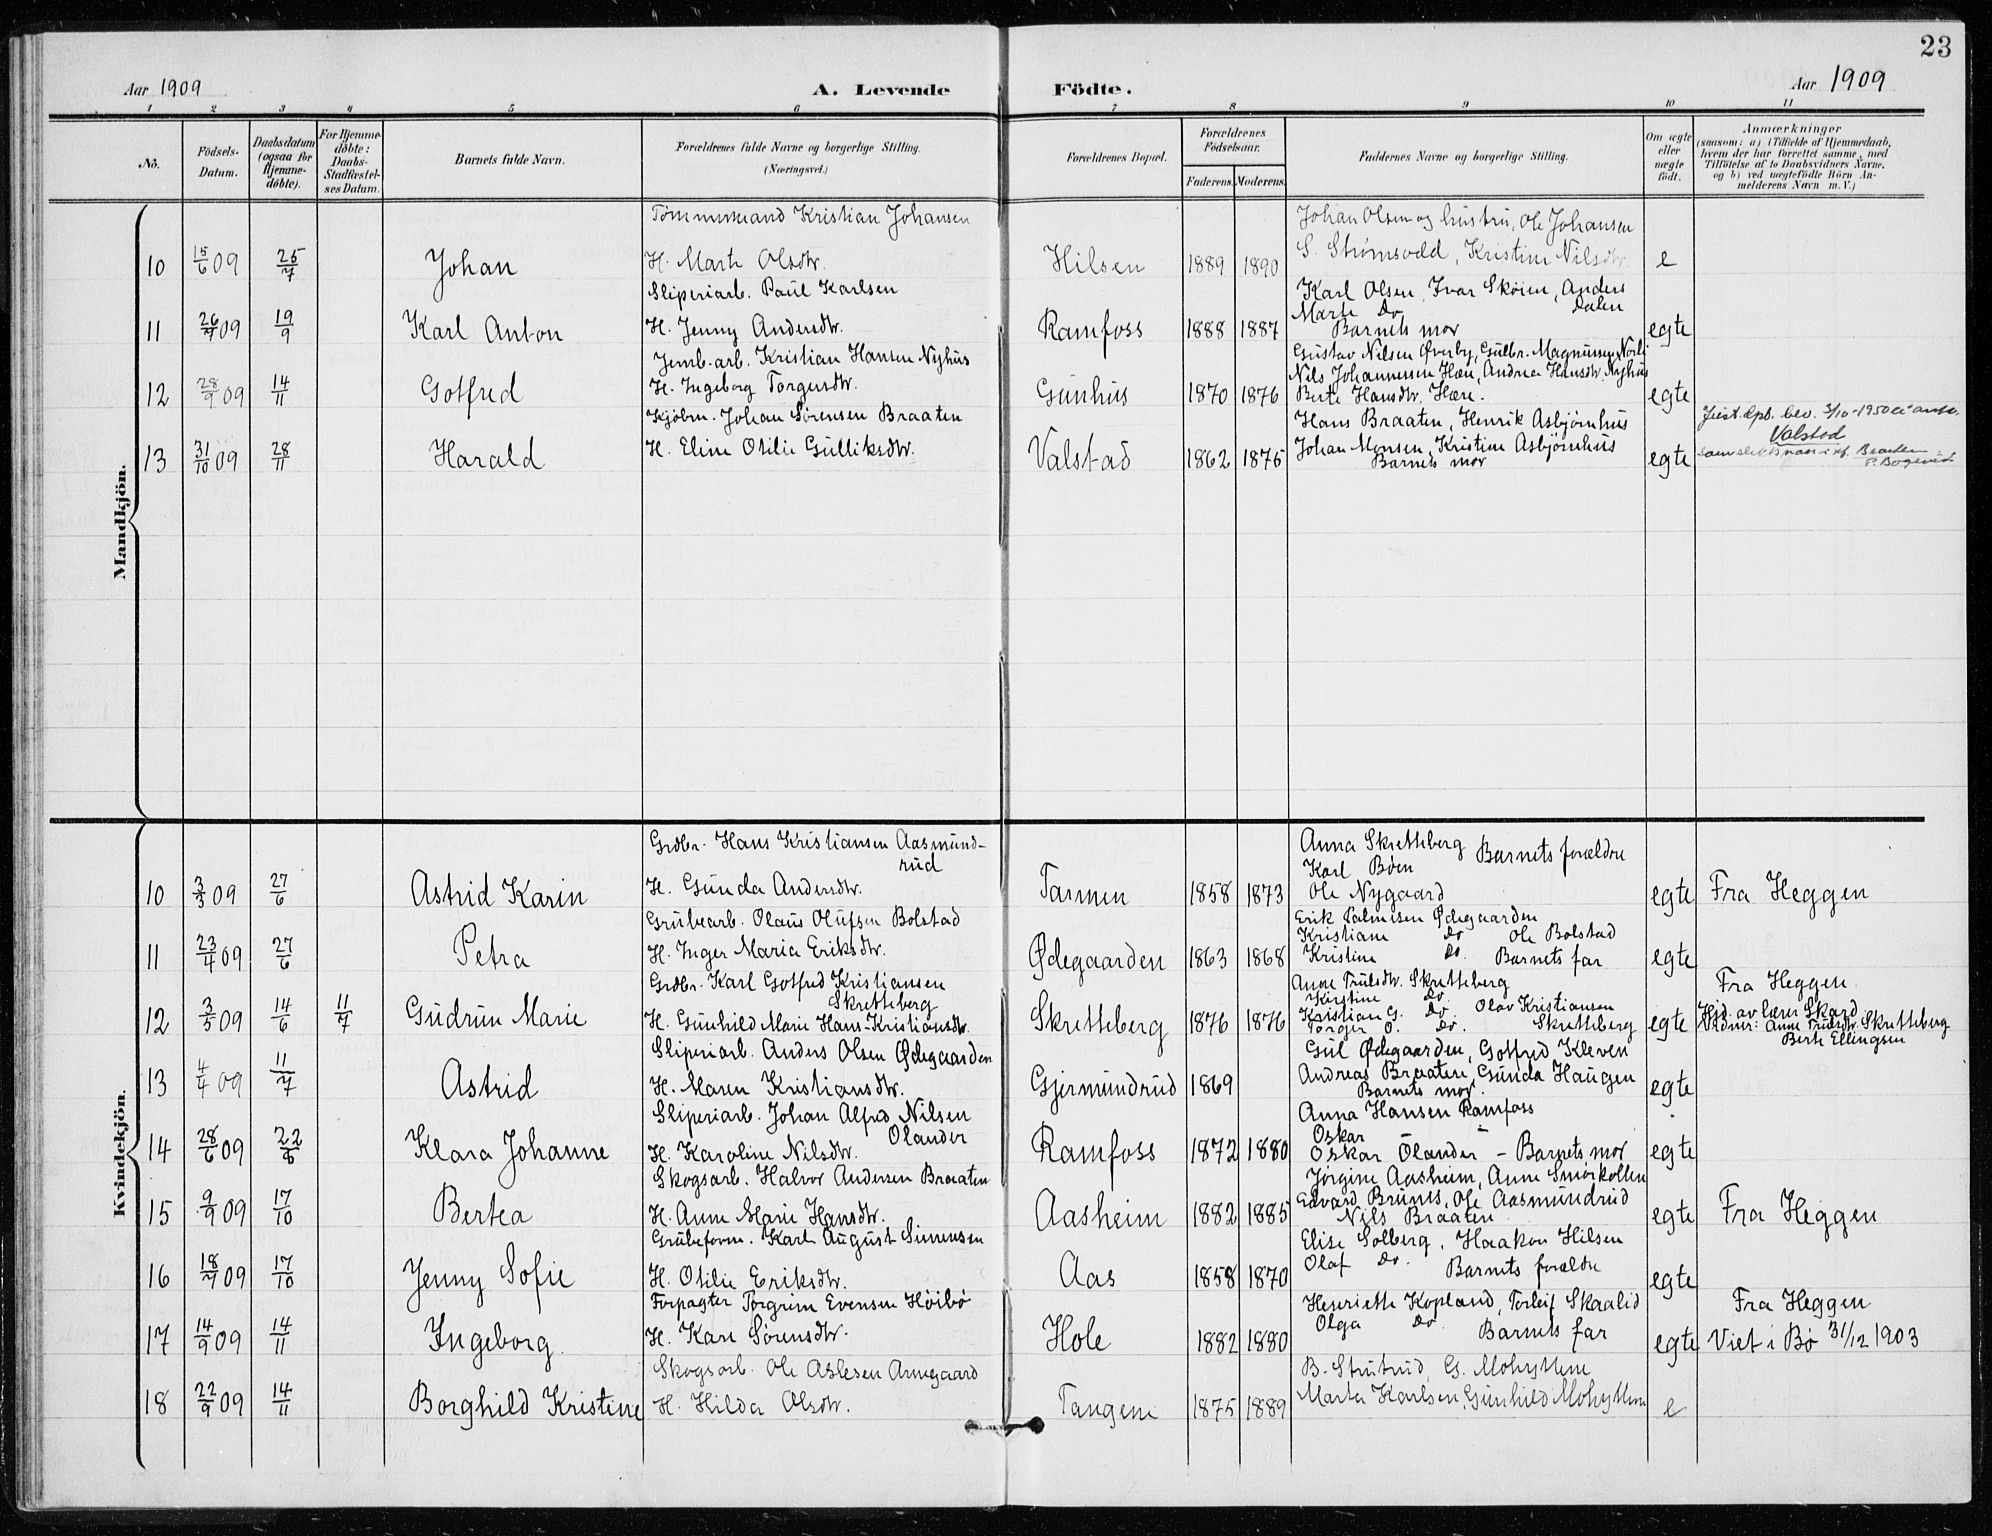 23
Aar 1909
A. Levende Födte.
Aar 1909
1 2 3 4 5 6 7 8 9 10 11
No.
Födsels-Datum.
Daabsdatum (ogsaa for Hjemme-döbte).
For Hjemme-döbte: Daabs-Stadfæstel-ses Datum.
Barnets fulde Navn.
Forældrenes fulde Navne og borgerlige Stilling. (Næringsvei.)
Forældrenes Bopæl.
Forældrenes Födselsaar.
Faderens. Moderens.
Faddernes Navne og borgerlige Stilling.
Om ægte eller uægte födt.
Anmærkninger
(saasom: a) i Tilfælde af Hjemmedaab,
hvem der har forrettet samme, med
Tilföielse af to Daabsvidners Navne,
og b) ved uægtefödte Börn An-
melderens Navn m. V.)
Mandkjön.
Tømmermand Kristian Johansen
Johan Olsen og hustru, Ole Johansen
10 15/6 09 25/7 Johan H. Marte Olsdtr. Hilsen 1889 1890 S. Strømsodd, Kristine Nilsdtr. e
Sliperiarb. Paul Karlsen
Karl Olsen, Ivar Skøien, Anders Dalen
11 26/7 09 19/9 Karl Anton H. Jenny Andersdtr. Ramfoss 1888 1887 Marte Do Barnets mor egte
Jernb.arb. Kristian Hansen Nyhus
Gustav Nilsen Øverby, Gulbr. Magnussen Norli
Nils Johannessen Hære, Andrea Hansdtr. Nyhus
12 28/9 09 14/11 Gotfred H. Ingeborg Torgersdtr. Gunhus 1870 1876 Berte Hansdtr. Hære. egte
Kjøbm. Johan Sørensen Braaten
Hans Braaten, Henrik Asbjørnhus
13 31/10 09 28/11 Harald H. Eline Otilie Gulliksdtr. Valstad 1862 1875 Johan Monsen, Kristine Asbjørnhus
Barnets mor egte
Just.dpt. bev. 3/10-1950 å anta
Valstad
som slektsnavn i st. f. Braaten
Kvindekjön.
Grdbr. Hans Kristiansen Aasmund-
rud
Anna Skretteberg Barnets forældre
Karl Bøen
10 3/3 09 27/6 Astrid Karin H. Gunda Andersdtr. Tarmen 1858 1873 Ole Nygaard egte Fra Heggen
Grubearb. Olaus Olufsen Bolstad
Erik Palmesen Ødegaarden
Kristiane Do Ole Bolstad
11 23/4 09 27/6 Petra H. Inger Maria Eriksdtr. Ødegaarden 1863 1868 Kristine Do. Barnets far egte
Grdbr. Karl Gotfred Kristiansen
Skretteberg
Anne Trulsdtr. Skretteberg
Kirstine Do.
Kristian G. Do. Olav Kristiansen
12 3/5 09 14/6 11/7 Gudrun Marie H. Gunhild Marie Hans-Kristiansdtr. Skretteberg 1876 1876 Torger O. Do. Skretteberg egte
Fra Heggen
Hjd. av lærer Skard
Vidner: Anne Trulsdtr. Skretteberg
Berte Ellingsen
Sliperiarb. Anders Olsen Ødegaarden
Gul Ødegaarden, Gotfred Kleven
13 4/4 09 11/7 Astrid H. Maren Kristiansdtr. Gjermundrud 1869 Andreas Braaten, Gunda Haugen
Barnets mor egte
Sliperiarb. Johan Alfred Nilsen
Olander
Anna Hansen Ramfoss
Oskar -
14 28/6 09 22/8 Klara Johanne H. Karoline Nilsdtr. Ramfoss 1872 1880 Oskar Ölander - Barnets mor egte
Skogsarb. Halvor Andersen Braaten
Jørgine Aasheim, Anne Smørkollen
15 9/9 09 17/10 Bertea H. Anne Marie Hansdtr. Aasheim 1882 1885 Edvard Brunes, Ole Aasmundrud
Nils Braaten egte Fra Heggen
Grubeform. Karl August Simensen
Elise Solberg, Haakon Hilsen
16 18/7 09 17/10 Jenny Sofie H. Otilie Eriksdtr. Aas 1858 1870 Olaf Do. Barnets forældre egte
Forpagter Torgrim Evensen Høibø
Henriette Kopland, Torleif Skaalid
17 14/9 09 14/11 Ingeborg H. Kari Sørensdtr. Hole 1882 1880 Olga Do. Barnets far egte
Fra Heggen
Viet i Bø 31/12 1903
Skogsarb. Ole Aslesen Arnegaard
B. Strutrud, G. Mohyttene
18 22/9 09 14/11 Borghild Kristine H. Hilda Olsdtr. Tangene 1875 1889 Marta Karlsen, Gunhild Mohyttene e